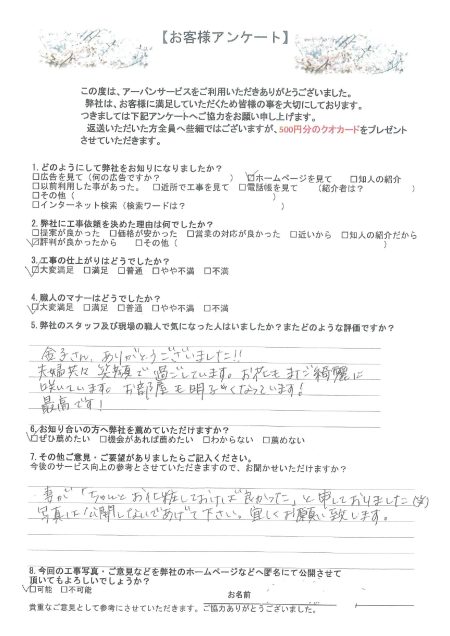 【お客様アンケート】
この度は、アーバンサービスをご利用いただきありがとうございました。
弊社は、お客様に満足していただくため皆様の事を大切にしております。
つきましては下記アンケートへご協力をお願い申し上げます。
返送いただいた方全員へ些細ではございますが、500円分のクオカードをプレゼント
させていただきます。
1.どのようにして弊社をお知りになりましたか?
□広告を見て(何の広告ですか? ) ☑ホームページを見て □知人の紹介
□以前利用した事があった。 □近所で工事を見て □電話帳を見て (紹介者は? )
□その他( )
□インターネット検索(検索ワードは? )
2.弊社に工事依頼を決めた理由は何でしたか?
□提案が良かった □価格が安かった □営業の対応が良かった □近いから □知人の紹介だから
☑評判が良かったから □その他( )
3.工事の仕上がりはどうでしたか?
☑大変満足 □満足 □普通 □やや不満 □不満
4.職人のマナーはどうでしたか?
☑大変満足 □満足 □普通 □やや不満 □不満
5.弊社のスタッフ及び現場の職人で気になった人はいましたか?またどのような評価ですか?
金子さん、ありがとうございました!!
夫婦共に笑顔で過ごしています。お花もまだ綺麗に
咲いています。お部屋も明るくなっています!
最高です!
6.お知り合いの方へ弊社を薦めていただけますか?
☑ぜひ薦めたい □機会があれば薦めたい □わからない □薦めない
7.その他ご意見・ご要望がありましたらご記入ください。
今後のサービス向上の参考とさせていただきますので、お聞かせいただけますか?
妻が「ちゃんとお化粧しておけば良かった」と申しておりました(笑)
写真は公開しないであげて下さい。宜しくお願い致します。
8.今回の工事写真・ご意見などを弊社のホームページなどへ匿名にて公開させて
頂いてもよろしいでしょうか?
☑可能 □不可能
お名前
貴重なご意見として参考にさせていただきます。ご協力ありがとうございました。